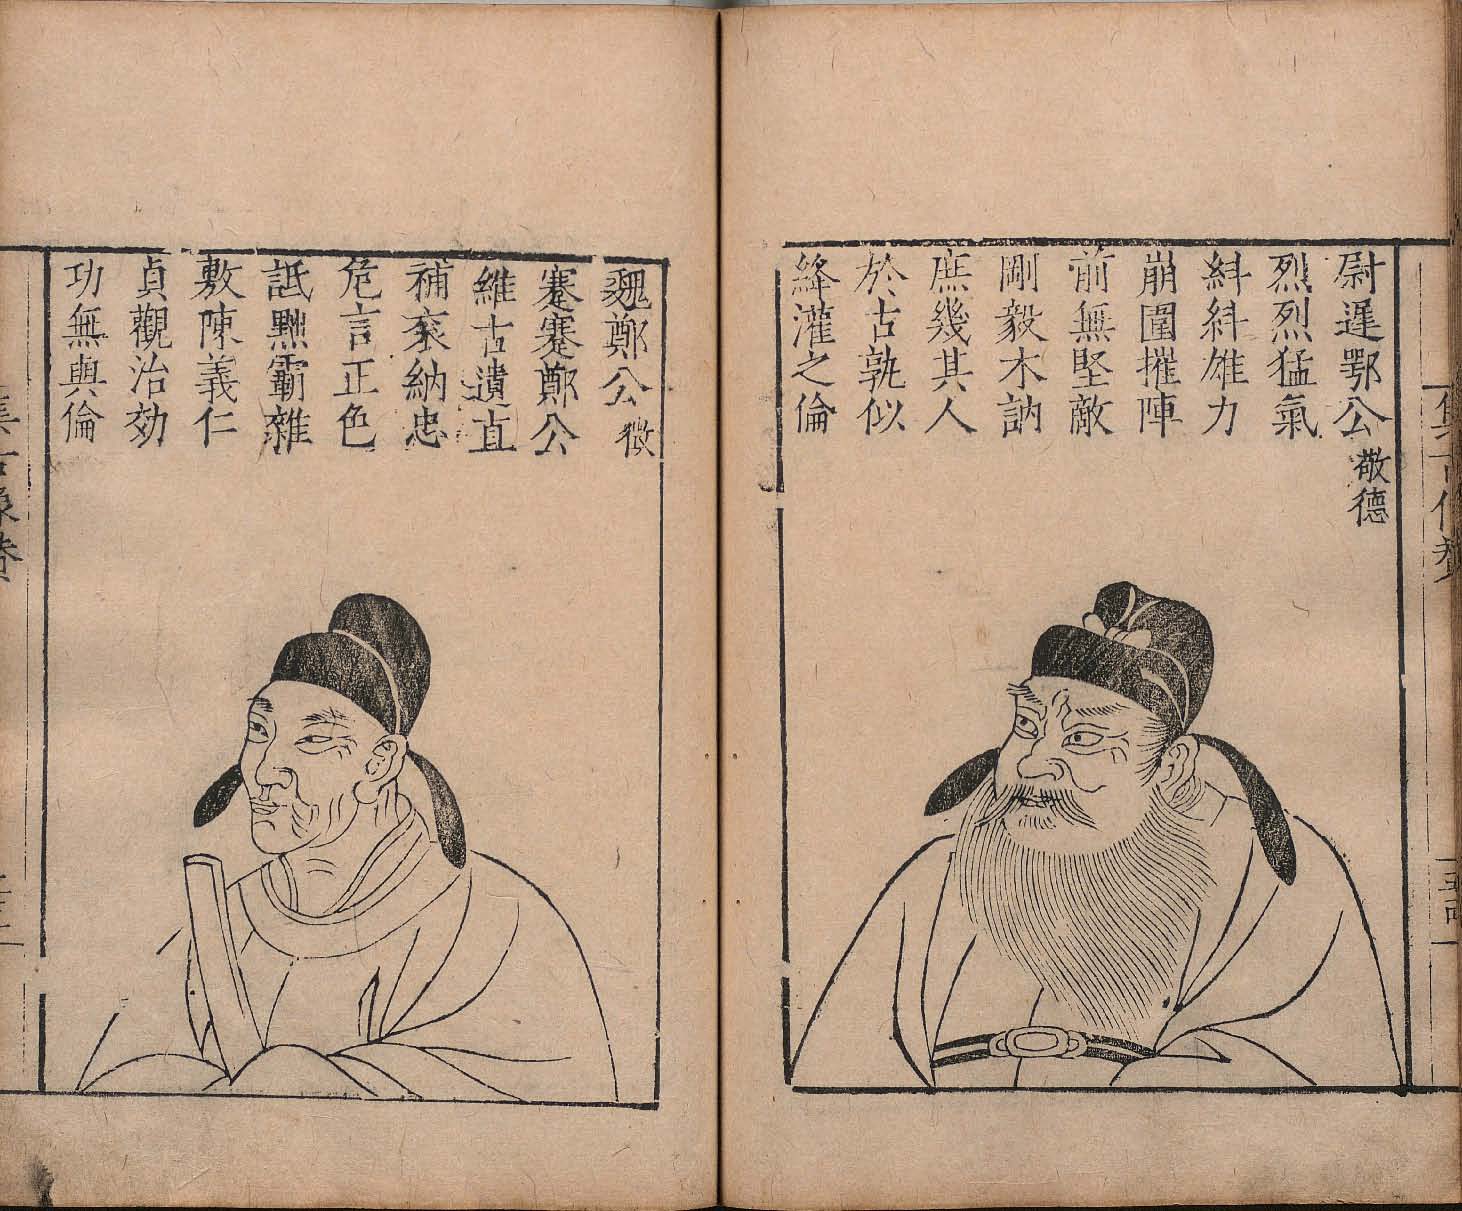 尉遲鄂公敬德
烈烈猛氣
紏紏雄力
崩圍摧陣
前無堅敵
剛毅木訥
庶幾其人
於古孰似
絳灌之倫
魏鄭公徵
蹇蹇鄭公
維古遺直
補衮納忠
危言正色
詆黙霸雜
敷陳義仁
貞觀治効
功無與倫